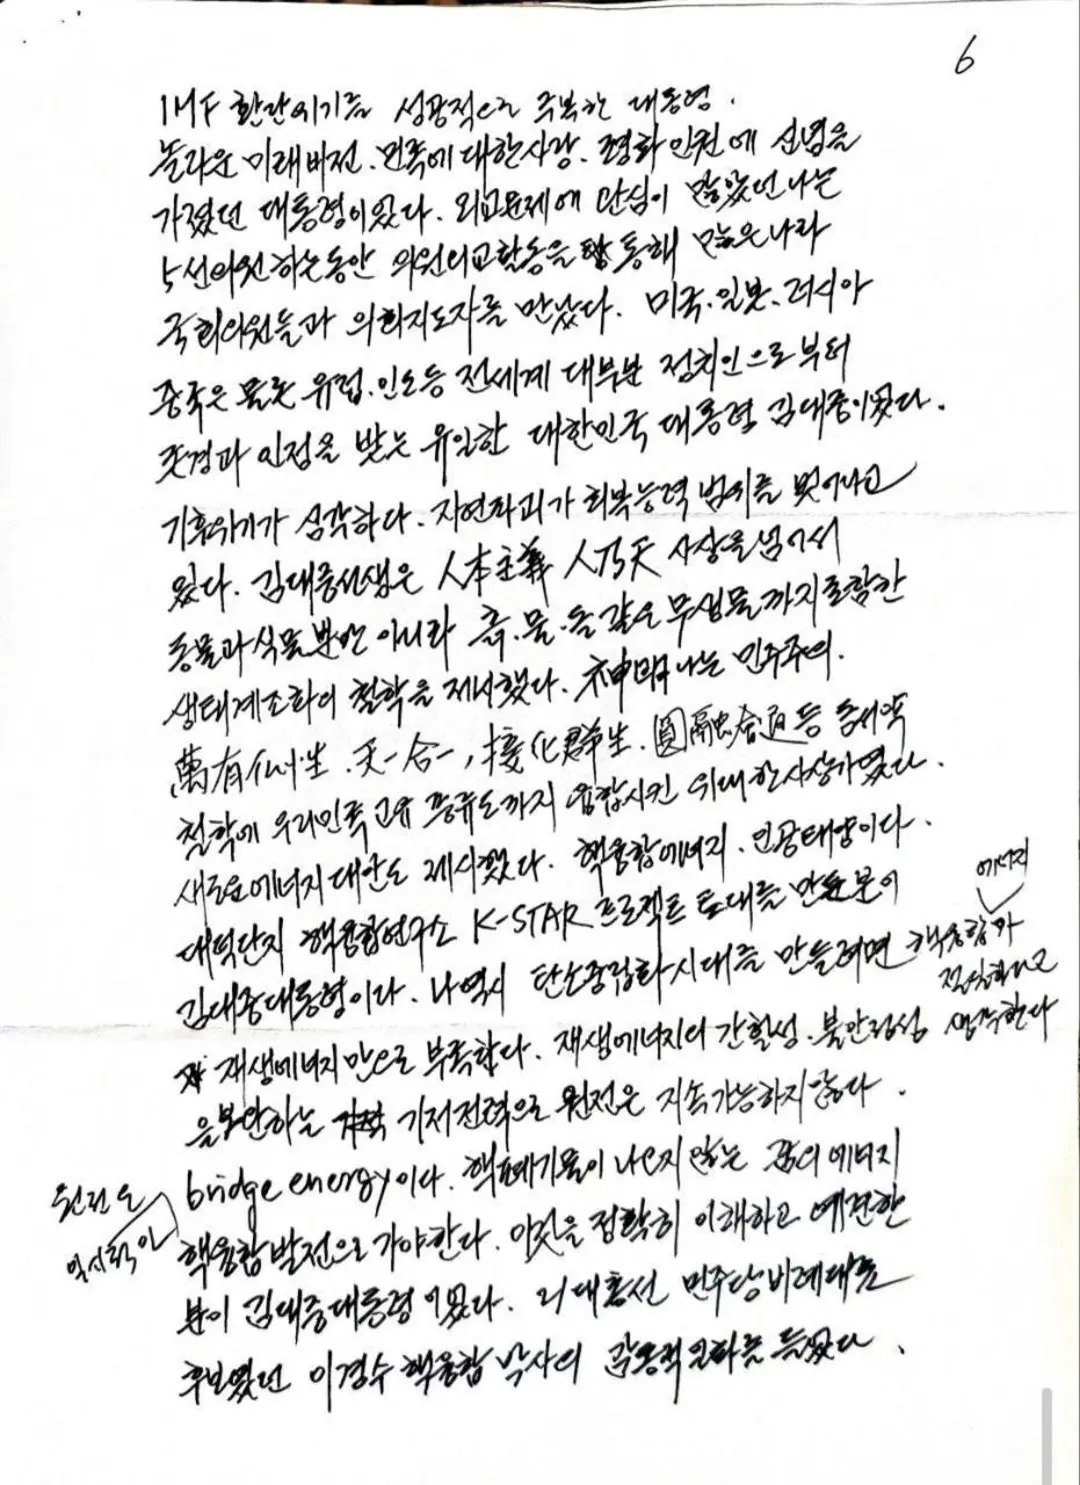 6
IMF 환란위기를 성공적으로 극복한 대통령.
놀라운 미래비전. 민족에 대한 사랑. 평화 인권에 신념을
가졌던 대통령이었다. 외교문제에 관심이 많았던 나는
5선의원 하는동안 의원외교활동을 통해 많은 나라
국회의원들과 의회지도자를 만났다. 미국. 일본. 러시아
중국은 물론 유럽. 인도등 전세계 대부분 정치인으로 부터
존경과 인정을 받는 유일한 대한민국 대통령 김대중이었다.
기후위기가 심각하다. 자연파괴가 회복능력 범위를 벗어나고
있다. 김대중선생은 人本主義 人乃天 사상을 넘어서
동물과 식물 뿐만 아니라 흙. 물. 돌 같은 무생물까지 포함한
생태계조화의 철학을 제시했다. 神明나는 민주주의.
萬有 生. 天 合一, 接化群生. 圓融合 등 동서양
철학에 우리민족 고유 풍류도까지 융합시킨 위대한 사상가였다.
새로운 에너지 대안도 제시했다. 핵융합에너지. 인공태양이다.
에너지
대덕단지 핵융합연구소 K-STAR 프로젝트 토대를 만든 분이
김대중대통령이다. 나 역시 탄소중립화시대를 만들려면 핵융합가
절실하다고
재생에너지만으로 부족하다. 재생에너지의 간헐성. 불안정성 생각한다
을 보완하는 기저전력으로 원전은 지속가능하지 않다.
원전은
bridge energy이다. 핵폐기물이 나오지 않는 꿈의 에너지
일시적인
핵융합발전으로 가야한다. 이것을 정확히 이해하고 예견한
분이 김대중대통령이었다. 21대총선 민주당 비례대표
후보였던 이경수 핵융합 박사의 감동적 일화를 들었다.